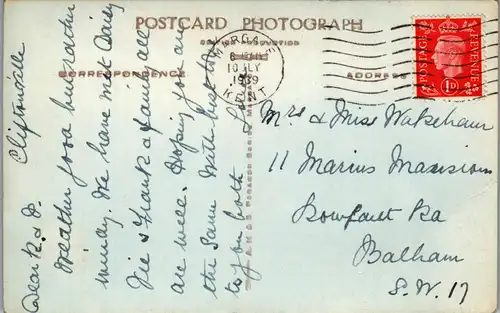 POSTCARD PHOTOGRAPH
BRITISH PRODUCTION
CORRESPONDENCE
ADDRESS
MARGATE
10 JLY
1939
KENT
POSTAGE REVENUE
1D
Cliftonville
Dear K & D.
Weather good but rather
windy. We have met Daisy
Vic & Frank & family all
are well. Hoping you are
the same. With best
to you both
Mrs & Miss Wakeham
11 Marius Mansions
Rowfant Rd
Balham
S.W. 17